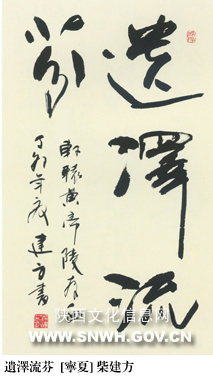 遺澤流
芬
軒轅黄帝陵
丁卯年 建方書
陕西文化信息网
WWW.SNWH.GOV.CN
遺澤流芬 [寧夏] 柴建方